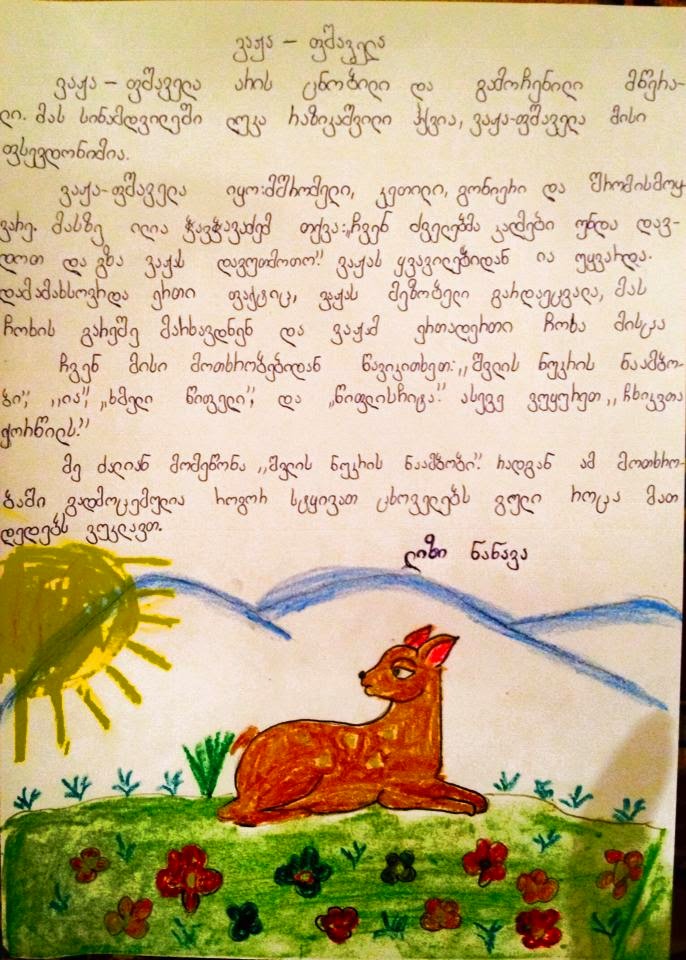 ვაჟა – ფშაველა
ვაჟა – ფშაველა არის ცნობილი და გამოჩენილი მწერა-
ლი. მას სინამდვილეში ლუკა რაზიკაშვილი ჰქვია, ვაჟა-ფშაველა მისი
ფსევდონიმია.
ვაჟა-ფშაველა იყო:მშრომელი, კეთილი, გონიერი და შრომისმოყ-
ვარე. მასზე ილია ჭავჭავაძემ თქვა:„ჩვენ ძველებმა კალმები უნდა დავ-
დოთ და გზა ვაჟას დავუთმოთო!“ ვაჟას ყვავილებიდან ია უყვარდა.
დამამახსოვრდა ერთი ფაქტიც, ვაჟას მეზობელი გარდაეცვალა, მას
ჩოხის გარეშე მარხავდნენ და ვაჟამ ერთადერთი ჩოხა მისცა
ჩვენ მისი მოთხრობებიდან წავიკითხეთ:,,შვლის ნუკრის ნაამბო-
ბი”, ,,ია”, „ხმელი წიფელი”, და „წიფლისჩიტა”. ასევე ვუყურეთ ,,ჩხიკვთა
ქორწილს.”
მე ძალიან მომეწონა ,,შვლის ნუკრის ნაამბობი”. რადგან ამ მოთხრო-
ბაში გადმოცემულია როგორ სტყივათ ცხოველებს გული როცა მათ
დედებს ვუკლავთ.
ლიზი ნანავა